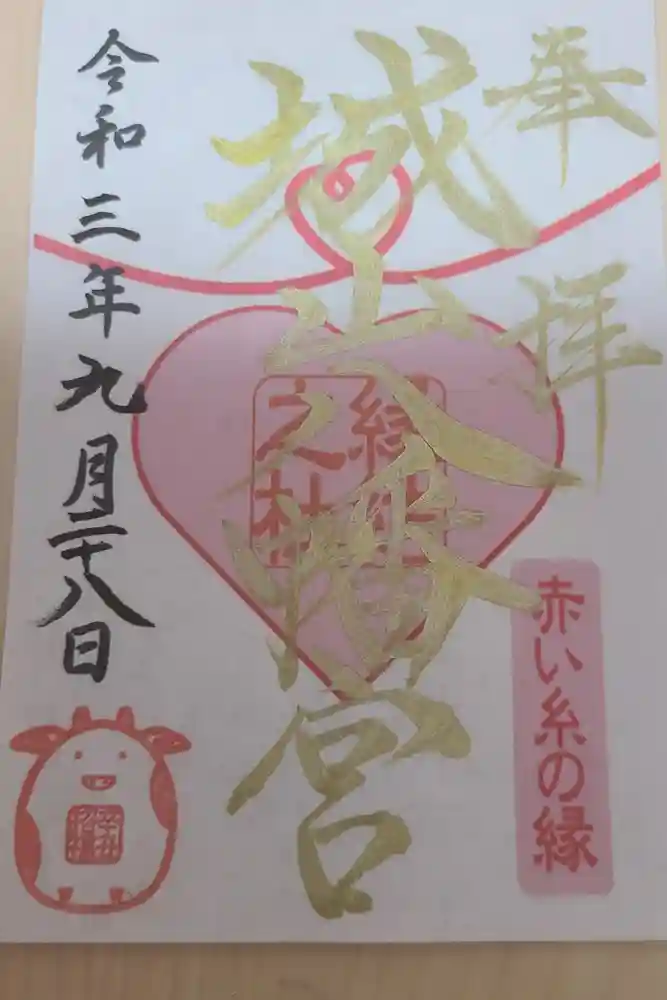 奉拝
城山八幡宮
縁結之杜
赤い糸の縁
令和三年九月二十八日